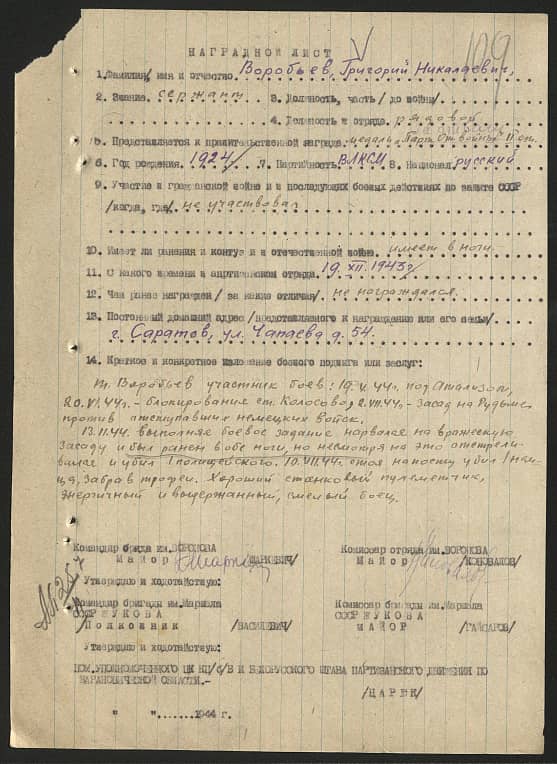 109
НАГРАДНОЙ ЛИСТ
1. Фамилия, имя и отчество. Воробьев, Григорий Николаевич,
2. Звание. сержант 3. Должность, часть /до войны/
4. Должность в отряде. рядовой
5. Представляется к правительственной награде. медаль "Парт. Отч. войны II ст.
6. Год рождения. 1924/ 7. Партийность ВЛКСМ 8. Национал. русский
9. Участие в гражданской войне и в последующих боевых действиях по защите СССР
/когда, где/ не участвовал
10. Имеет ли ранения и контуз в отечественной войне. имеет в ноги
11. С какого времени в партизанском отряде. 19.XII.1943г
12. Чем ранее награжден /за какие отличия/. не награждался
13. Постоянный домашний адрес /представляемого к награждению или его семьи/
г. Саратов, ул. Чапаева д. 54.
14. Краткое и конкретное изложение боевого подвига или заслуг:
т. Воробьев участник боев: 19.V.44г. под
20.VI.44г. - блокирование ст. Колосово, 2.VII.44г. - засад на
против отступавших немецких войск.
13.II.44. выполняя боевое задание нарвался на вражескую
засаду и был ранен в обе ноги, но несмотря на это отстрели-
вался и убил 1 полицейского. 10.VII.44г. стоя на посту убил 1 нем-
ца, забрав трофеи. Хороший станковый пулеметчик,
энергичный и выдержанный, смелый боец.
Командир отряда им. ВОРОНОВА Комиссар отряда им. ВОРОНОВА
Майор /ШАРКЕВИЧ/ Майор /КОНОВАЛОВ/
Утверждаю и ходатайствую:
Командир бригады им. Маршала Комиссар бригады им. Маршала
СССР ЖУКОВА СССР ЖУКОВА
Полковник /ВАСИЛЕВИЧ/ МАЙОР /ГАЙСАРОВ/
Утверждаю и ходатайствую:
ПОМ. УПОЛНОМОЧЕННОГО ЦК КП/б/Б И БЕЛОРУССКОГО ШТАБА ПАРТИЗАНСКОГО ДВИЖЕНИЯ ПО
БАРАНОВИЧСКОЙ ОБЛАСТИ.-
/ЦАРЕК/
" " .......1944 г.